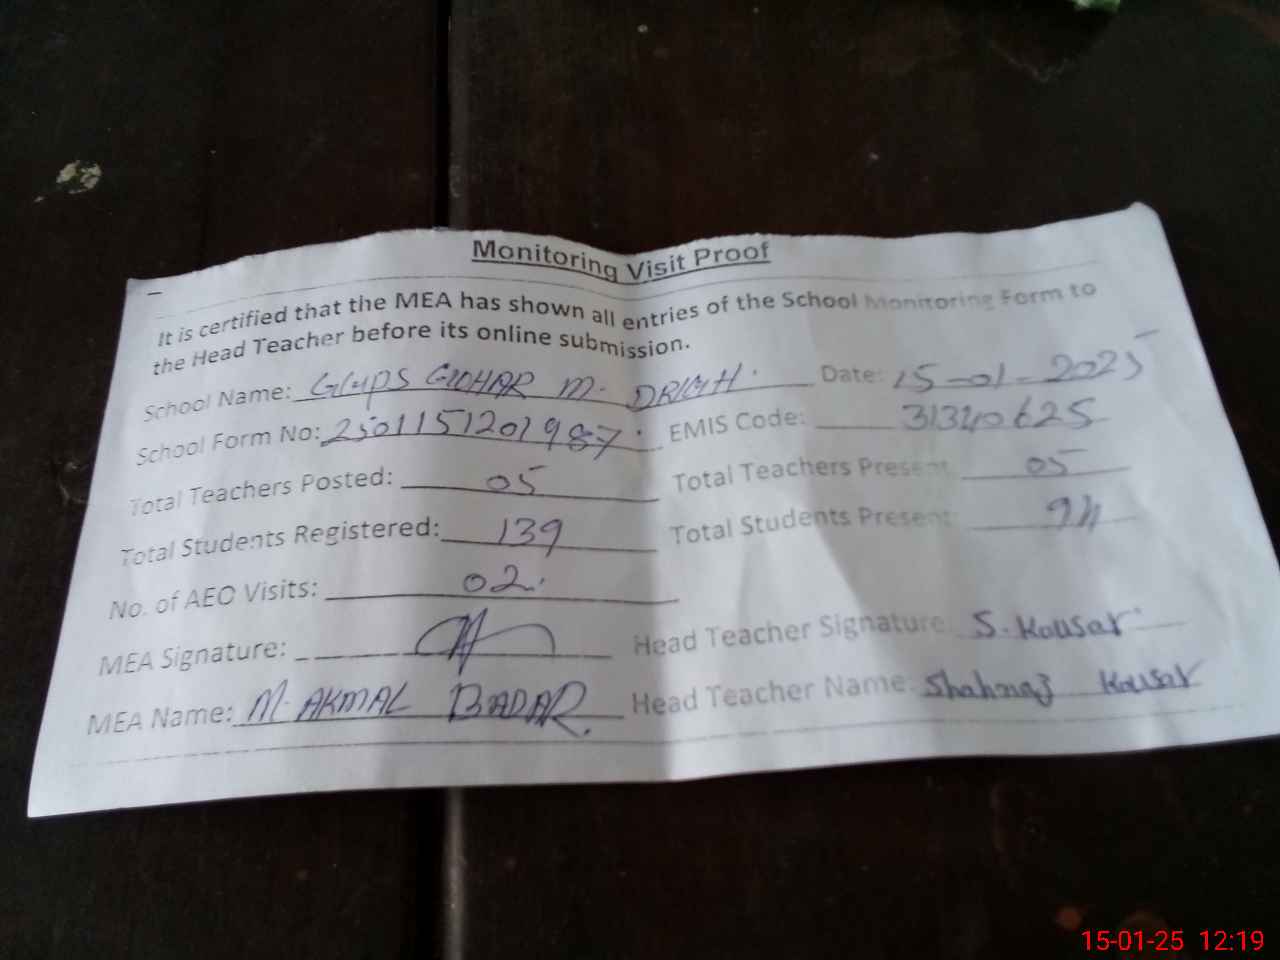 Monitoring Visit Proof
It is certified that the MEA has shown all entries of the School Monitoring Form to
the Head Teacher before its online submission.
School Name: GGPS GIDHAR M. Date: 15-01-2025
School Form No: 2501151201987. EMIS Code: 31340625
Total Teachers Posted: 05 Total Teachers Present: 05
Total Students Registered: 139 Total Students Present: 94
No. of AEO Visits: 02.
MEA Signature: Head Teacher Signature: S. Kousar
MEA Name: M. AKMAL BADAR. Head Teacher Name: Shahnaz Kousar
15-01-25 12:19